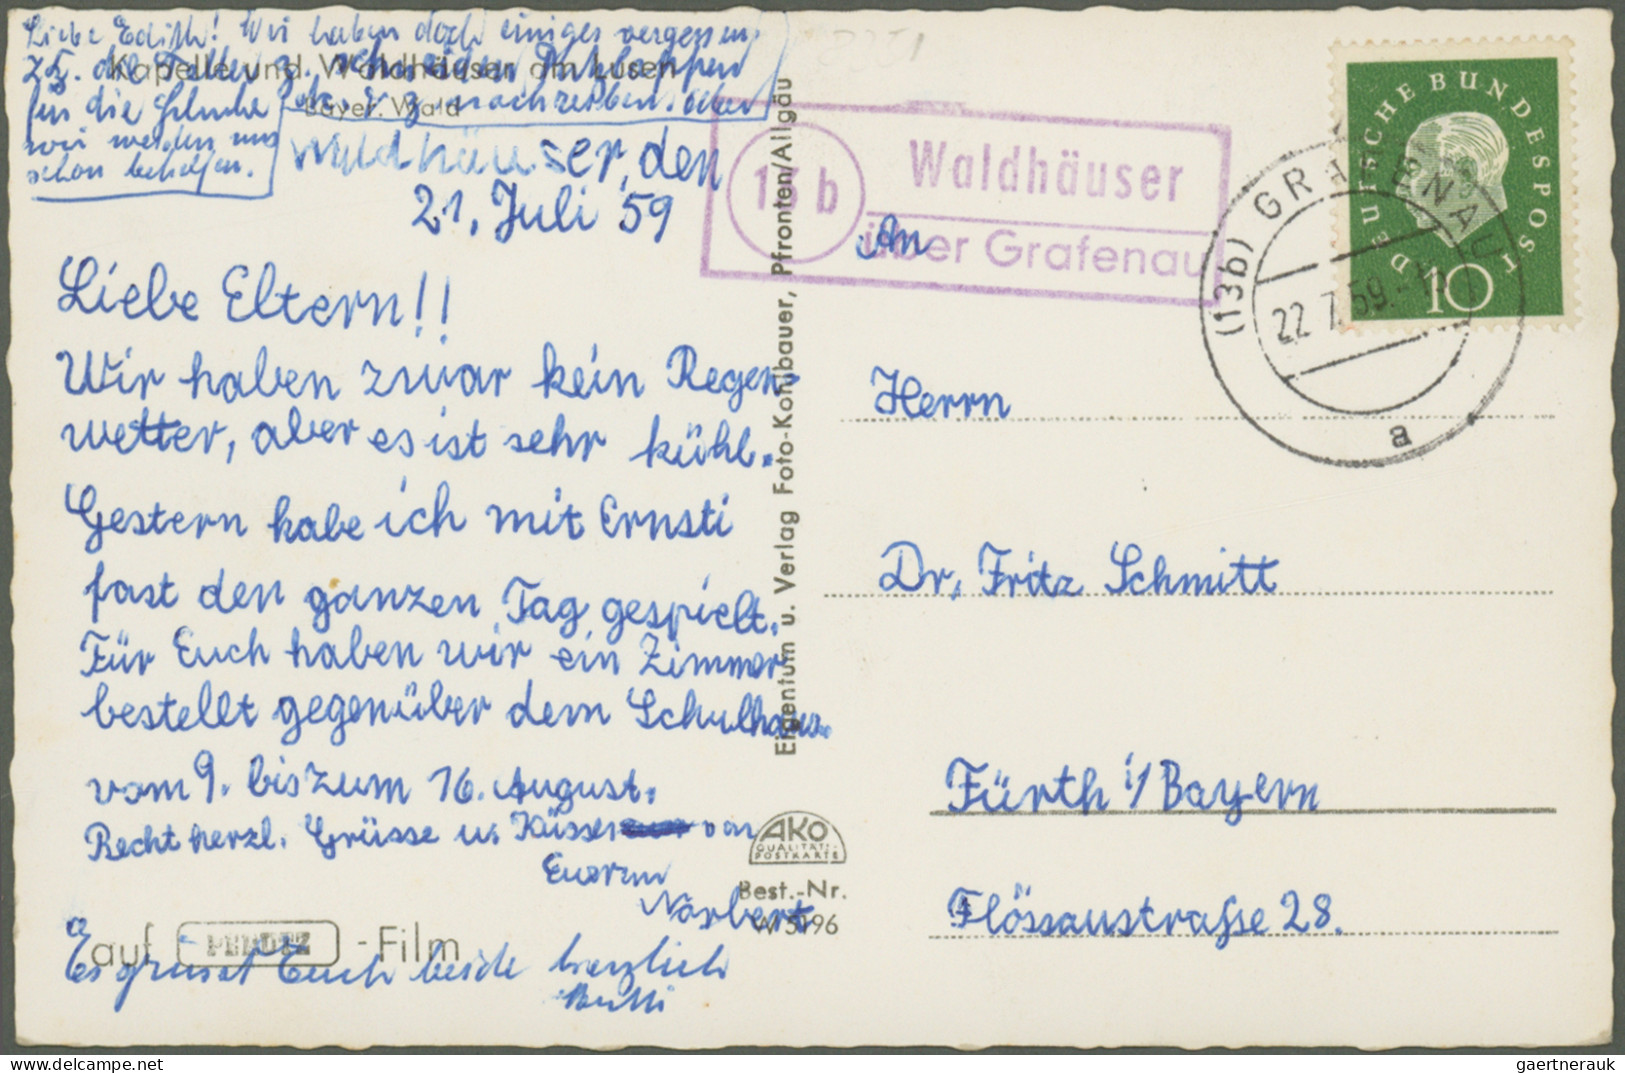 Liebe Edith! Wir haben doch einiges vergessen
z.B. die
für die
wir werden uns
schon behelfen.
Kapelle und Waldhäuser am Lusen
Bayer. Wald
Waldhäuser, den
21. Juli 59
Liebe Eltern!!
Wir haben zwar kein Regen-
wetter, aber es ist sehr kühl.
Gestern habe ich mit Ernsti
fast den ganzen Tag gespielt.
Für Euch haben wir ein Zimmer
bestellt gegenüber dem Schulhaus
vom 9. bis zum 16. August.
Recht herzl. Grüsse u. Küsse von
Eurem
Norbert
auf PERUTZ -Film
Es grüsst Euch beide herzlich
Eigentum u. Verlag Foto-Kohlbauer, Pfronten/Allgäu
AKO
QUALITÄTS-
POSTKARTE
Best.-Nr.
W 5196
13b
Waldhäuser
über Grafenau
(13b) GRAFENAU
22.7.59.-15
a
DEUTSCHE BUNDESPOST
10
An
Herrn
Dr. Fritz Schmitt
Fürth i/Bayern
Flössaustraße 28.
gaertnerauk